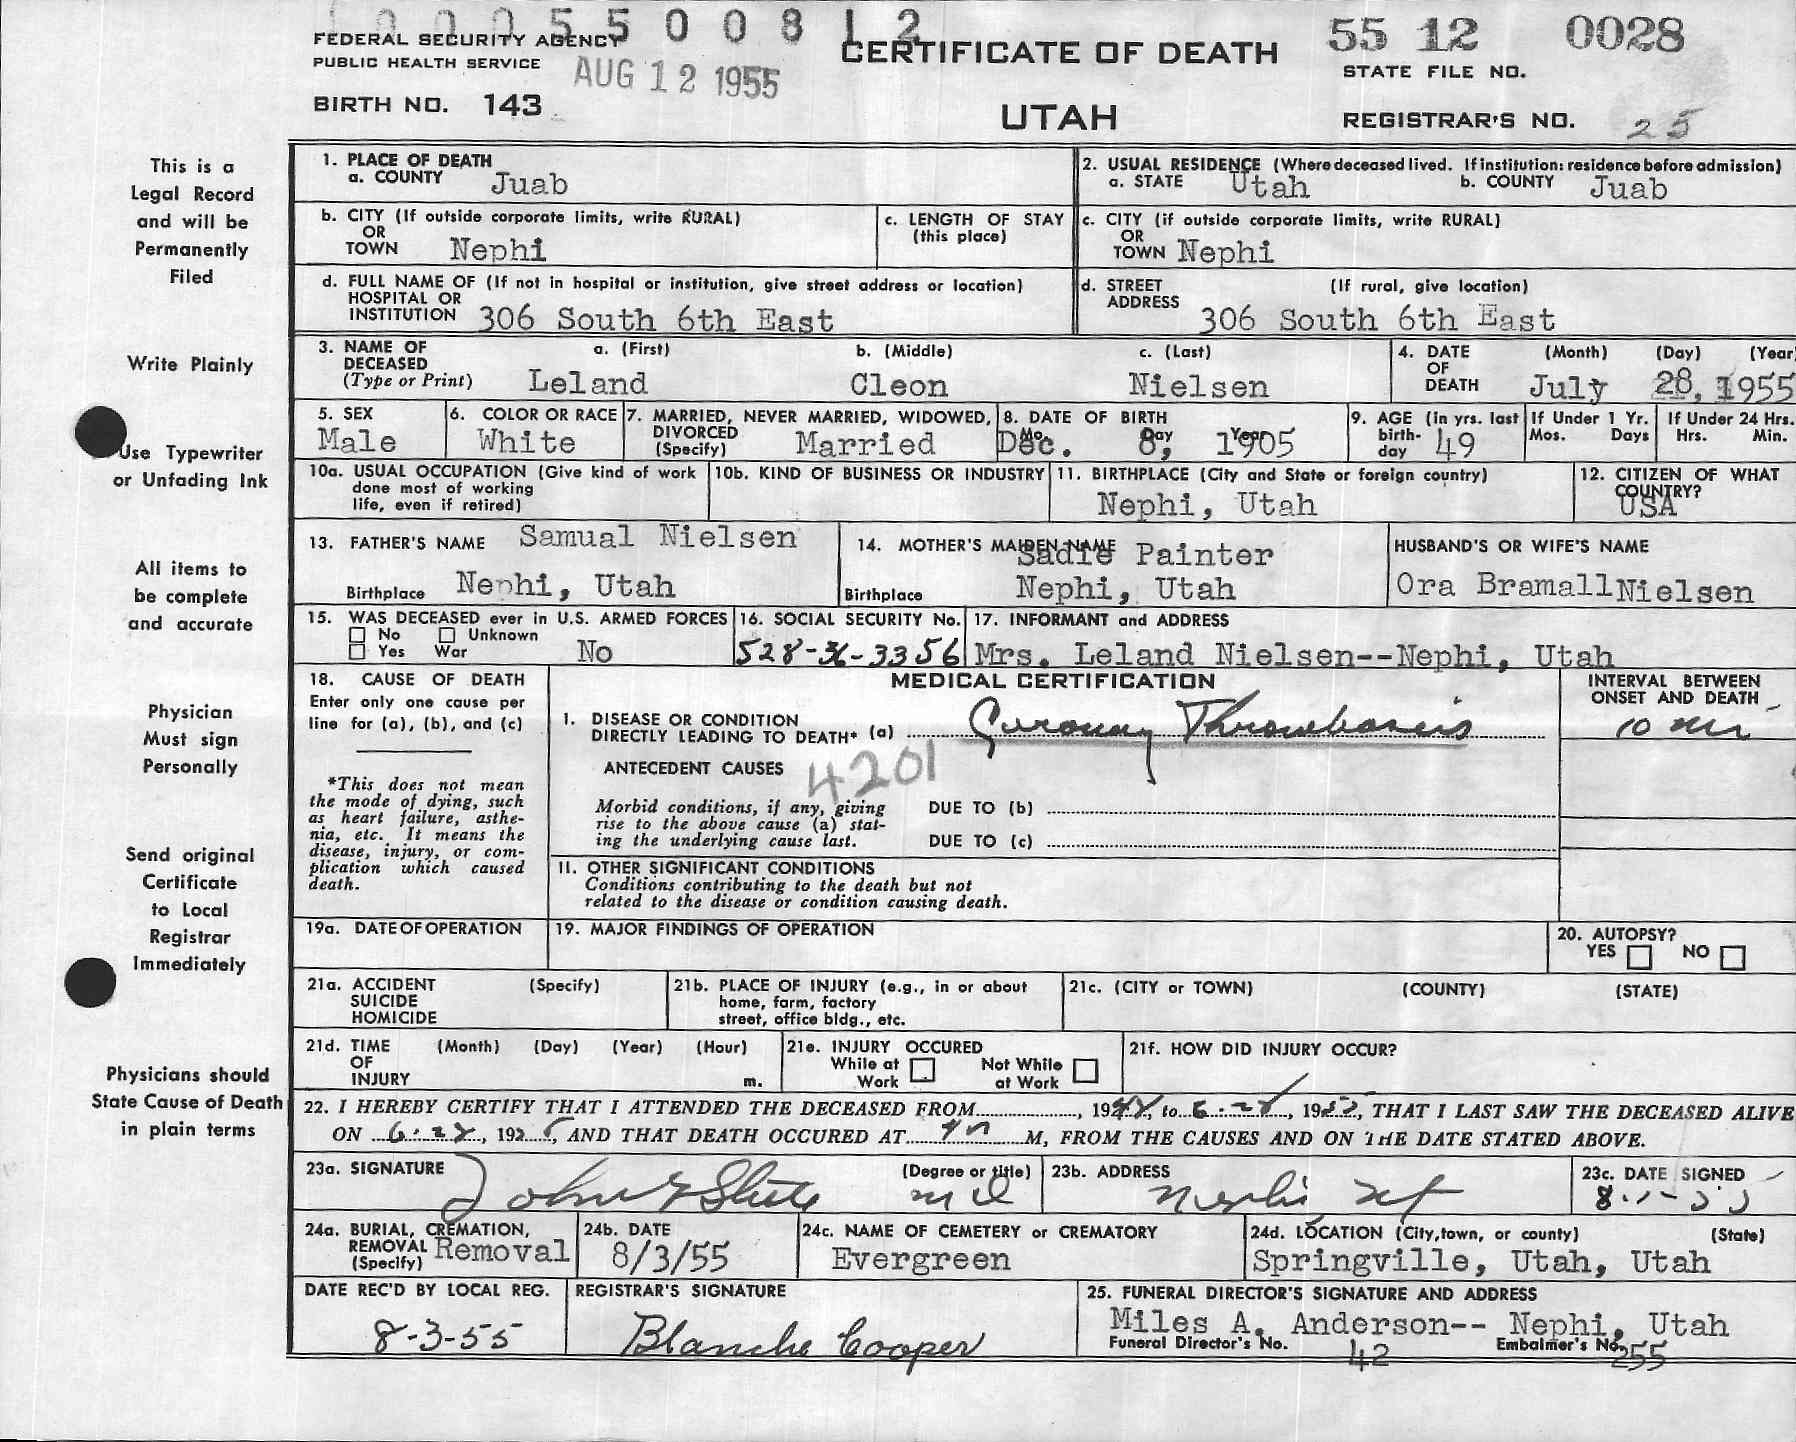 1 0 0 0 5 5 0 0 8 1 2
FEDERAL SECURITY AGENCY
PUBLIC HEALTH SERVICE
AUG 12 1955
CERTIFICATE OF DEATH
55 12 0028
STATE FILE NO.
BIRTH NO. 143
UTAH
REGISTRAR'S NO. 25
This is a
Legal Record
and will be
Permanently
Filed
Write Plainly
Use Typewriter
or Unfading Ink
All items to
be complete
and accurate
Physician
Must sign
Personally
Send original
Certificate
to Local
Registrar
Immediately
Physicians should
State Cause of Death
in plain terms
1. PLACE OF DEATH
a. COUNTY Juab
2. USUAL RESIDENCE (Where deceased lived. If institution: residence before admission)
a. STATE Utah b. COUNTY Juab
b. CITY (If outside corporate limits, write RURAL)
OR
TOWN Nephi
c. LENGTH OF STAY
(this place)
c. CITY (if outside corporate limits, write RURAL)
OR
TOWN Nephi
d. FULL NAME OF (If not in hospital or institution, give street address or location)
HOSPITAL OR
INSTITUTION 306 South 6th East
d. STREET (If rural, give location)
ADDRESS
306 South 6th East
3. NAME OF a. (First) b. (Middle) c. (Last)
DECEASED
(Type or Print) Leland Cleon Nielsen
4. DATE (Month) (Day) (Year)
OF
DEATH July 28, 1955
5. SEX
Male
6. COLOR OR RACE
White
7. MARRIED, NEVER MARRIED, WIDOWED,
DIVORCED
(Specify) Married
8. DATE OF BIRTH
Mo. Day Year
Dec. 8, 1905
9. AGE (in yrs. last
birth-
day 49
If Under 1 Yr.
Mos. Days
If Under 24 Hrs.
Hrs. Min.
10a. USUAL OCCUPATION (Give kind of work
done most of working
life, even if retired)
10b. KIND OF BUSINESS OR INDUSTRY
11. BIRTHPLACE (City and State or foreign country)
Nephi, Utah
12. CITIZEN OF WHAT
COUNTRY?
USA
13. FATHER'S NAME Samual Nielsen
Birthplace Nephi, Utah
14. MOTHER'S MAIDEN NAME
Sadie Painter
Birthplace Nephi, Utah
HUSBAND'S OR WIFE'S NAME
Ora Bramall Nielsen
15. WAS DECEASED ever in U.S. ARMED FORCES
No Unknown
Yes War No
16. SOCIAL SECURITY No.
528-36-3356
17. INFORMANT and ADDRESS
Mrs. Leland Nielsen--Nephi, Utah
18. CAUSE OF DEATH
Enter only one cause per
line for (a), (b), and (c)
*This does not mean
the mode of dying, such
as heart failure, asthe-
nia, etc. It means the
disease, injury, or com-
plication which caused
death.
MEDICAL CERTIFICATION
INTERVAL BETWEEN
ONSET AND DEATH
1. DISEASE OR CONDITION
DIRECTLY LEADING TO DEATH* (a) Coronary Thrombosis
10
ANTECEDENT CAUSES 4201
Morbid conditions, if any, giving
rise to the above cause (a) stat-
ing the underlying cause last.
DUE TO (b)
DUE TO (c)
11. OTHER SIGNIFICANT CONDITIONS
Conditions contributing to the death but not
related to the disease or condition causing death.
19a. DATE OF OPERATION
19. MAJOR FINDINGS OF OPERATION
20. AUTOPSY?
YES NO
21a. ACCIDENT (Specify)
SUICIDE
HOMICIDE
21b. PLACE OF INJURY (e.g., in or about
home, farm, factory
street, office bldg., etc.
21c. (CITY or TOWN) (COUNTY) (STATE)
21d. TIME (Month) (Day) (Year) (Hour)
OF
INJURY m.
21e. INJURY OCCURED
While at Not While
Work at Work
21f. HOW DID INJURY OCCUR?
22. I HEREBY CERTIFY THAT I ATTENDED THE DECEASED FROM , 19 , to 6-28, 1955, THAT I LAST SAW THE DECEASED ALIVE
ON 6-28, 195 , AND THAT DEATH OCCURED AT M, FROM THE CAUSES AND ON THE DATE STATED ABOVE.
23a. SIGNATURE (Degree or title)
John M D
23b. ADDRESS
Nephi Ut
23c. DATE SIGNED
8-1-55
24a. BURIAL, CREMATION,
REMOVAL
(Specify) Removal
24b. DATE
8/3/55
24c. NAME OF CEMETERY or CREMATORY
Evergreen
24d. LOCATION (City, town, or county) (State)
Springville, Utah, Utah
DATE REC'D BY LOCAL REG.
8-3-55
REGISTRAR'S SIGNATURE
Blanche Cooper
25. FUNERAL DIRECTOR'S SIGNATURE AND ADDRESS
Miles A. Anderson-- Nephi, Utah
Funeral Director's No. 42 Embalmer's No. 255